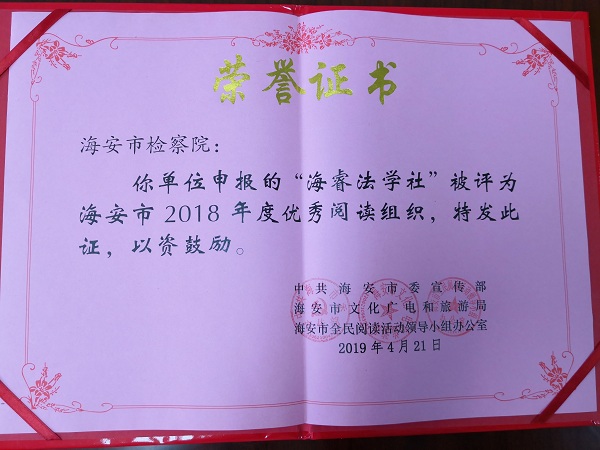 荣誉证书
海安市检察院：
你单位申报的“海睿法学社”被评为
海安市2018年度优秀阅读组织，特发此
证，以资鼓励。
中共海安市委宣传部
海安市文化广电和旅游局
海安市全民阅读活动领导小组办公室
2019年4月21日